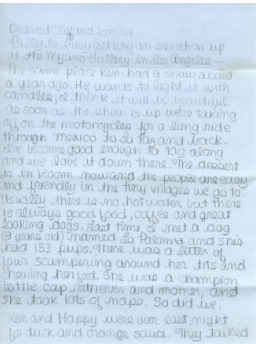 Dearest Clyf and
Billy is busy getting an exhibition up
at the Mizuno Gallery in Los Angeles —
The same place Ken had a show about
a year ago. He wants to light it with
candles, I think it will be beautiful.
as soon as the show is up we're taking
off on the motorcycles for a long ride
through Mexico to La Paz and back.
I've become good enough to tag along
and we love it down there. The desert
is in bloom now and the people are easy
and friendly in the tiny villages we go to.
Usually there is no hot water but there
is always good food, coffee and great
looking dogs. Last time I met a dog
(8 years old) named La Paloma and she's
had 153 pups. There was a litter of
four scampering around her tits and
chewing her feet. She was a champion
bottle cap retriever and mother, and
she took lots of naps. So did we.
Ken and Happy were over last night
for duck and orange sauce. They talked